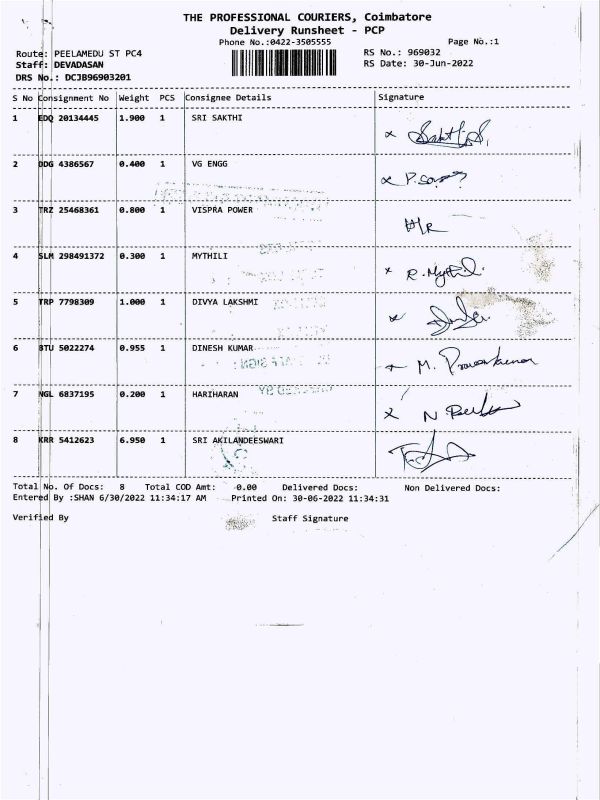 THE PROFESSIONAL COURIERS, Coimbatore
Delivery Runsheet - PCP
Phone No.:0422-3505555 Page No.:1
Route: PEELAMEDU ST PC4 RS No.: 969032
Staff: DEVADASAN RS Date: 30-Jun-2022
DRS No.: DCJB96903201
S No Consignment No Weight PCS Consignee Details Signature
1 EDQ 20134445 1.900 1 SRI SAKTHI
2 DDG 4386567 0.400 1 VG ENGG
3 TRZ 25468361 0.800 1 VISPRA POWER
4 SLM 298491372 0.300 1 MYTHILI R. Mythili
5 TRP 7798309 1.000 1 DIVYA LAKSHMI
6 BTU 5022274 0.955 1 DINESH KUMAR
7 NGL 6837195 0.200 1 HARIHARAN
8 KRR 5412623 6.950 1 SRI AKILANDEESWARI
Total No. Of Docs: 8 Total COD Amt: 0.00 Delivered Docs: Non Delivered Docs:
Entered By :SHAN 6/30/2022 11:34:17 AM Printed On: 30-06-2022 11:34:31
Verified By Staff Signature